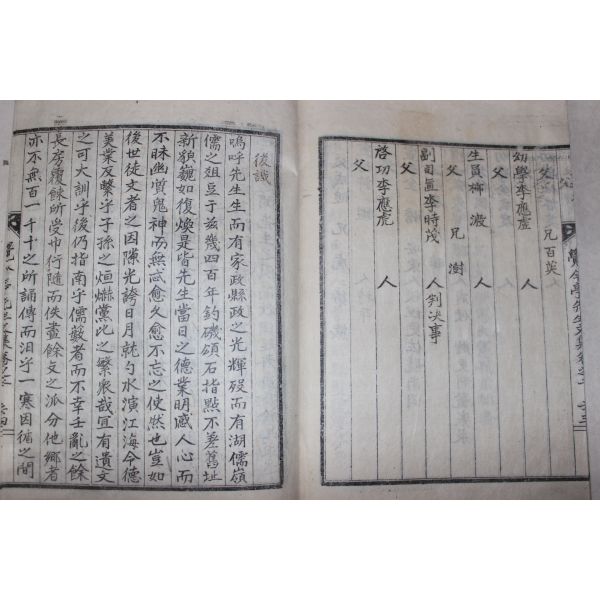 父 兄百英
幼學李應虛 人
父 人
生員柳潑 人
父 兄澍
副司直李時茂 人判決事
父
啓功李應虎 人
父
覺今亭先生文集卷之
後識
嗚呼先生生而有家政縣政之光輝歿而有湖儒嶺
儒之俎豆于玆幾四百年釣磯頌石指點不差舊址
新額巍如復煥是皆先生當日之德業明感人心而
不昧幽質鬼神而無忒愈久愈不忘之使然也豈如
後世徒文者之因隙光誇日月就勺水演江海令德
美業反繫乎子孫之烜爀黨比之繁衆哉宜有遺文
之可大訓乎後仍指南乎儒鼓者而不幸壬亂之餘
長房覆餗所受巾行隨而佚盡餘文之派分他鄕者
亦不無百一千十之所誦傳而汨乎一寒因循之間